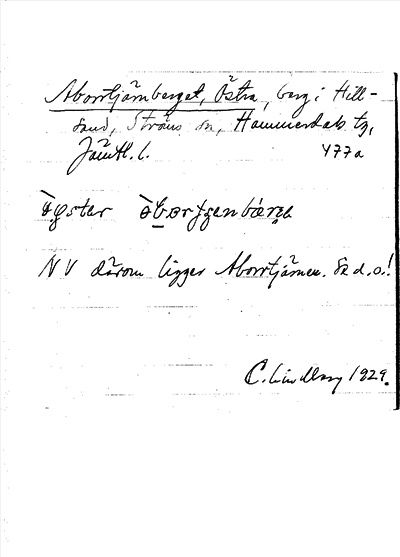 Aborrtjärnberget, Östra, berg i Hill-
sand, Ströms sn, Hammerdals tg,
Jämtl. l. 477a
NV därom ligger Aborrtjärnen. Se d.o.!
C. Lindberg 1929.